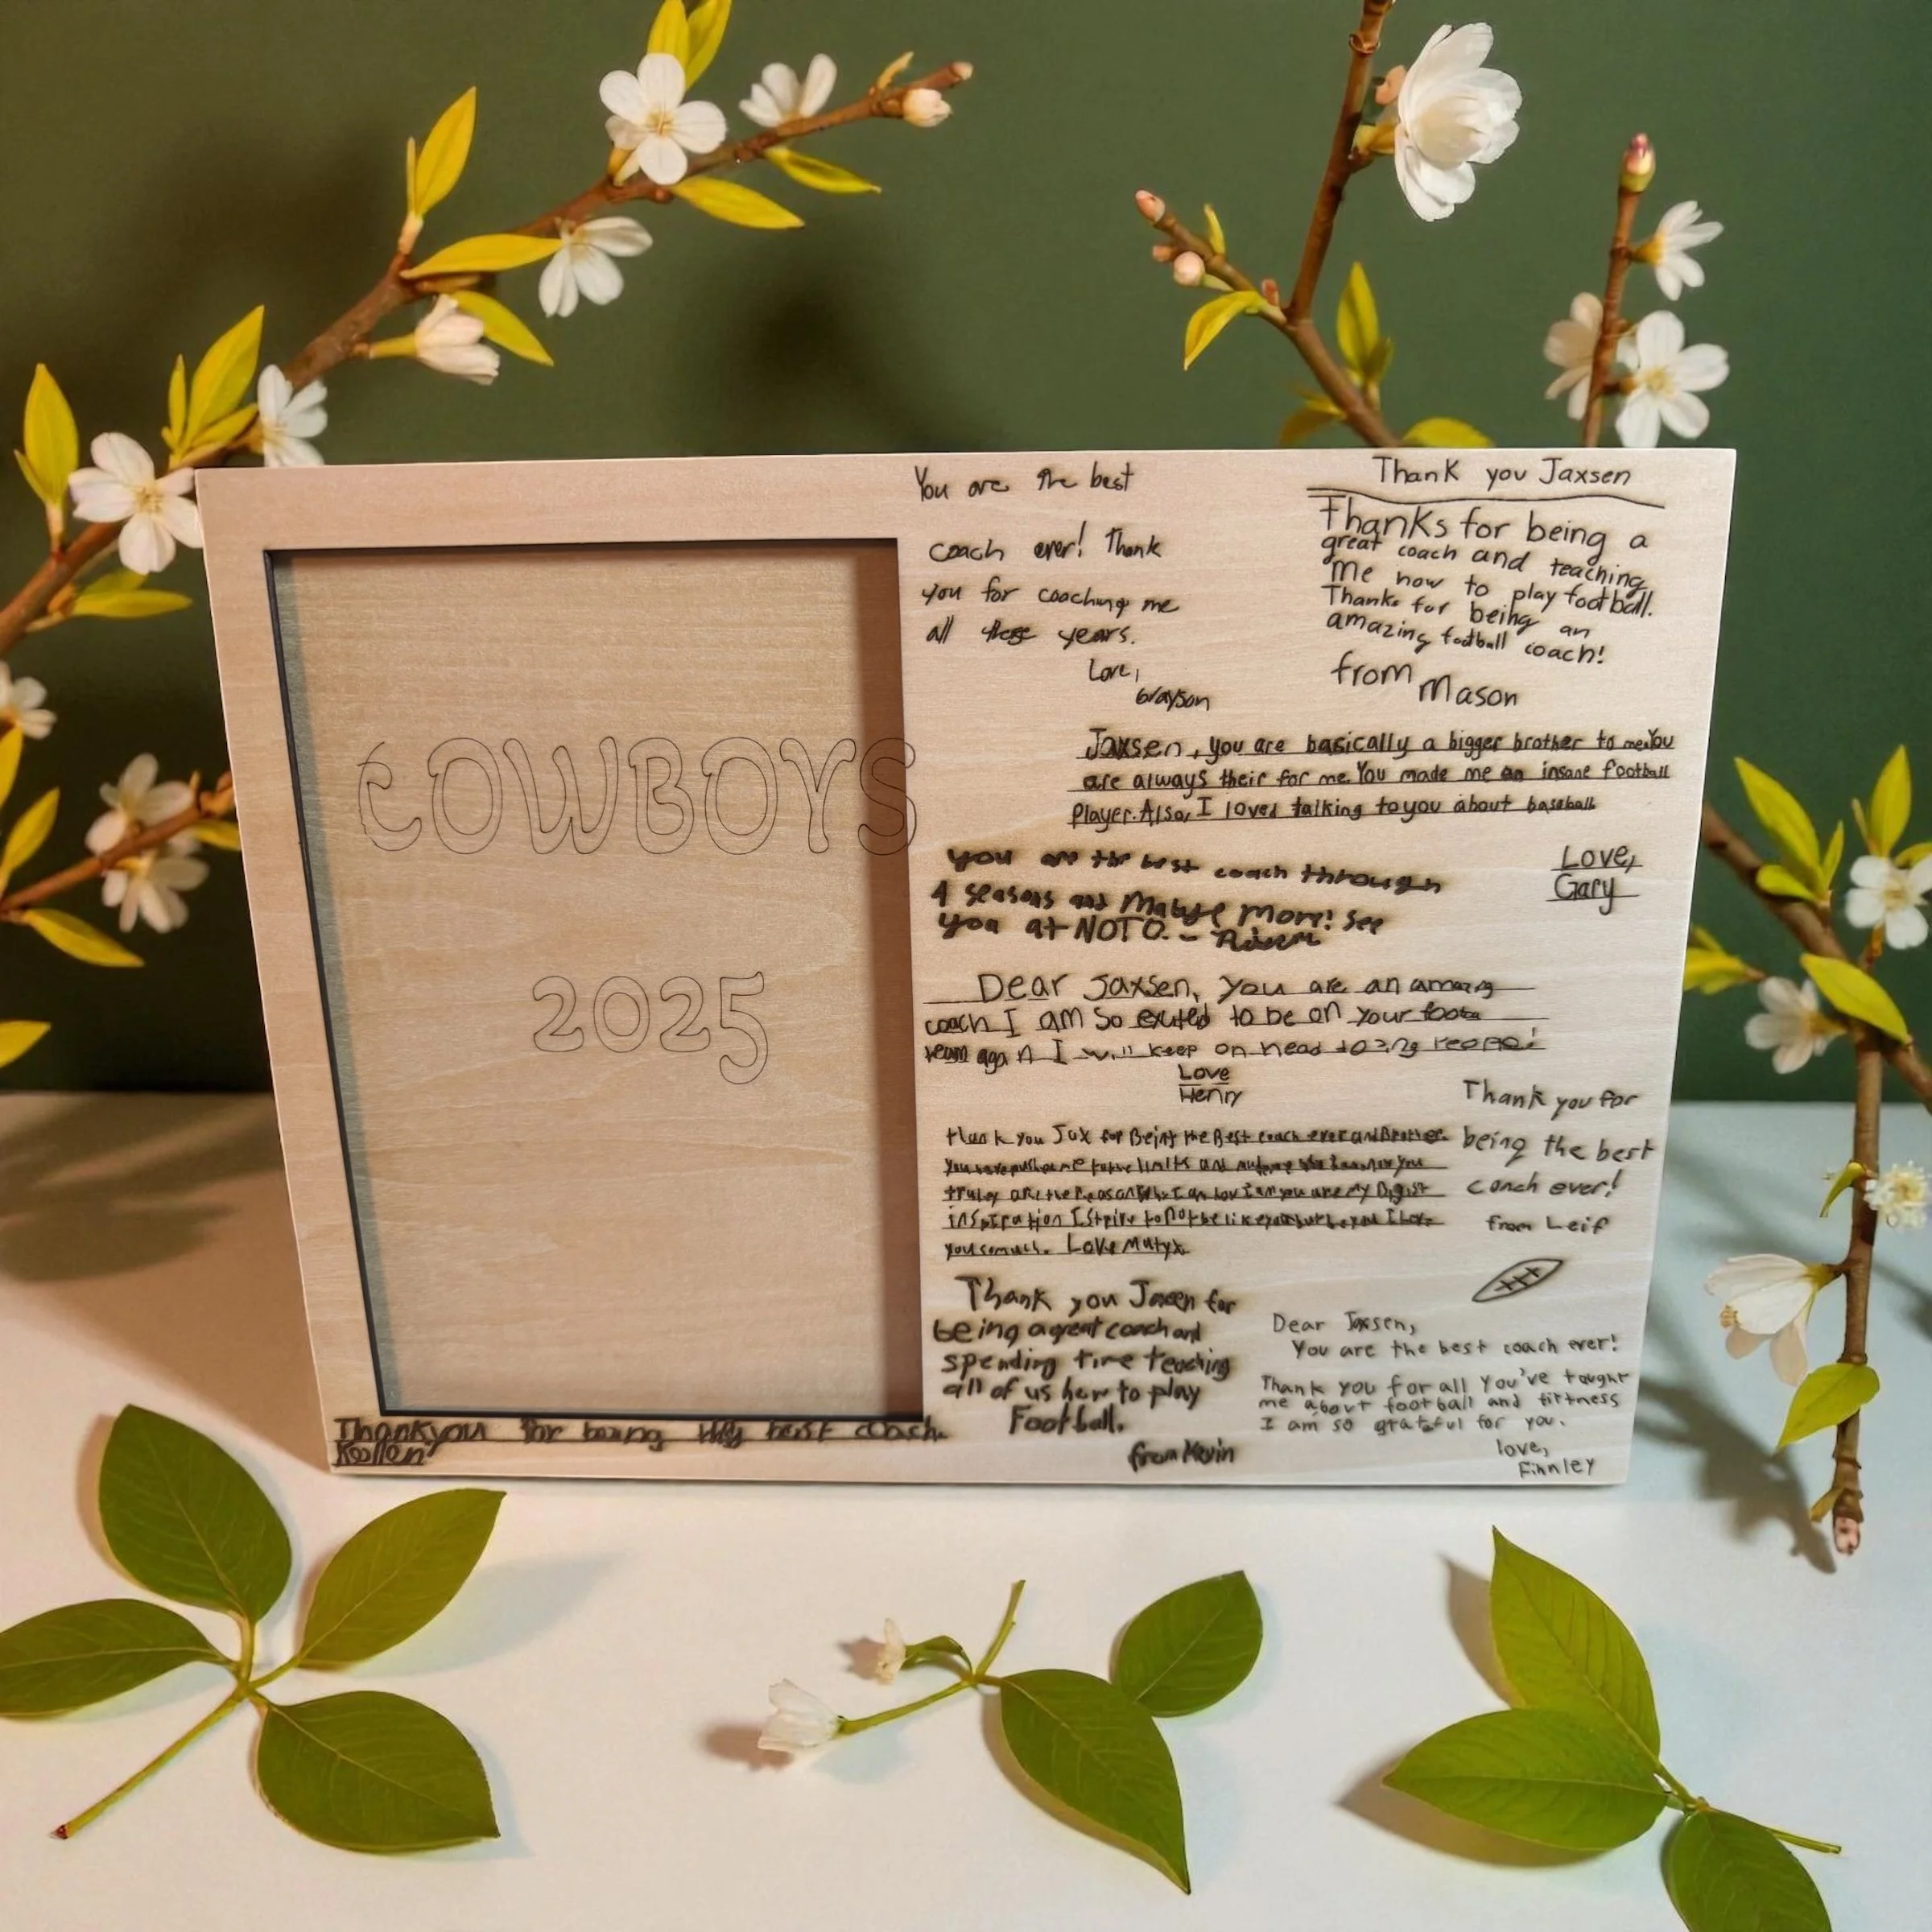 COWBOYS
2025
You are the best
coach ever! Thank
you for coaching me
all these years.
Love,
Grayson
Thank you Jaxsen
Thanks for being a
great coach and teaching
me how to play football.
Thanks for being an
amazing football coach!
from Mason
Jaxsen, you are basically a bigger brother to me. You
are always their for me. You made me an insane football
player. Also, I loved talking to you about baseball
Love,
Gary
You are the best coach through
4 seasons and Maybye More! See
you at NOTO. -
Dear Jaxsen, you are an amazing
coach I am so exited to be on your
team again I will keep on head
Love
Henry
thank you Jax for Being the Best coach ever and Brother
you have push me to the limits and
truley are the reason what I am you are my Bigist
inspiration I strive to not be like you but be you I love
you so much. Love Matyx
Thank you for
being the best
coach ever!
from Leif
Thank you Jaxen for
being a great coach and
spending time teaching
all of us how to play
Football.
from Kevin
Dear Jaxsen,
You are the best coach ever!
Thank you for all you've taught
me about football and firtness
I am so grateful for you.
love,
Finnley
Thankyou for being My best coach.
Kollen